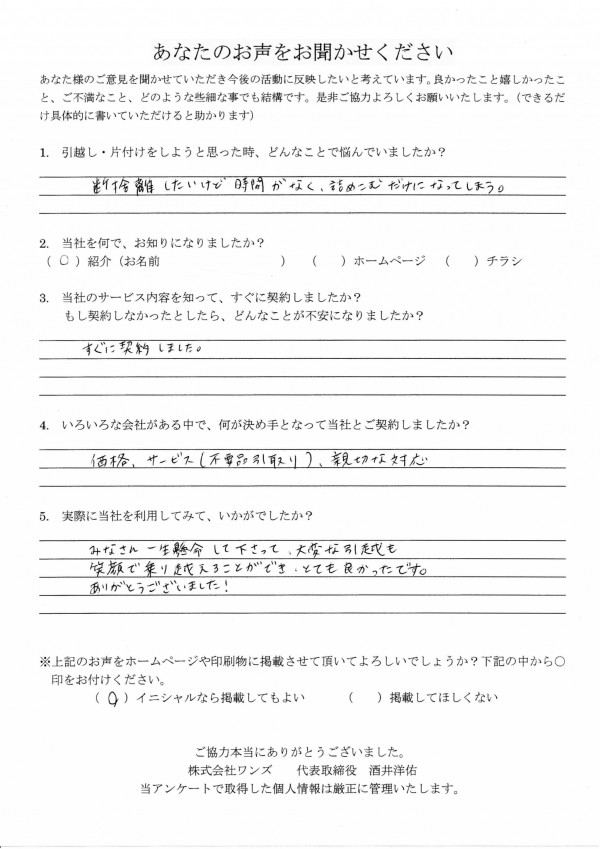 あなたのお声をお聞かせください
あなた様のご意見を聞かせていただき今後の活動に反映したいと考えています。良かったこと嬉しかったこ
と、ご不満なこと、どのような些細な事でも結構です。是非ご協力よろしくお願いいたします。（できるだ
け具体的に書いていただけると助かります）
1. 引越し・片付けをしようと思った時、どんなことで悩んでいましたか？
断捨離したいけど時間がなく、詰めこむだけになってしまう。
2. 当社を何で、お知りになりましたか？
（ ○ ）紹介（お名前　　　　　　　　　　）　（　　）ホームページ　（　　）チラシ
3. 当社のサービス内容を知って、すぐに契約しましたか？
もし契約しなかったとしたら、どんなことが不安になりましたか？
すぐに契約しました。
4. いろいろな会社がある中で、何が決め手となって当社とご契約しましたか？
価格、サービス(不要品引取り)、親切な対応
5. 実際に当社を利用してみて、いかがでしたか？
みなさん一生懸命して下さって、大変な引越も
笑顔で乗り越えることができ、とても良かったです。
ありがとうございました！
※上記のお声をホームページや印刷物に掲載させて頂いてよろしいでしょうか？下記の中から○
印をお付けください。
（ ○ ）イニシャルなら掲載してもよい　　　（　　）掲載してほしくない
ご協力本当にありがとうございました。
株式会社ワンズ　　代表取締役　酒井洋佑
当アンケートで取得した個人情報は厳正に管理いたします。